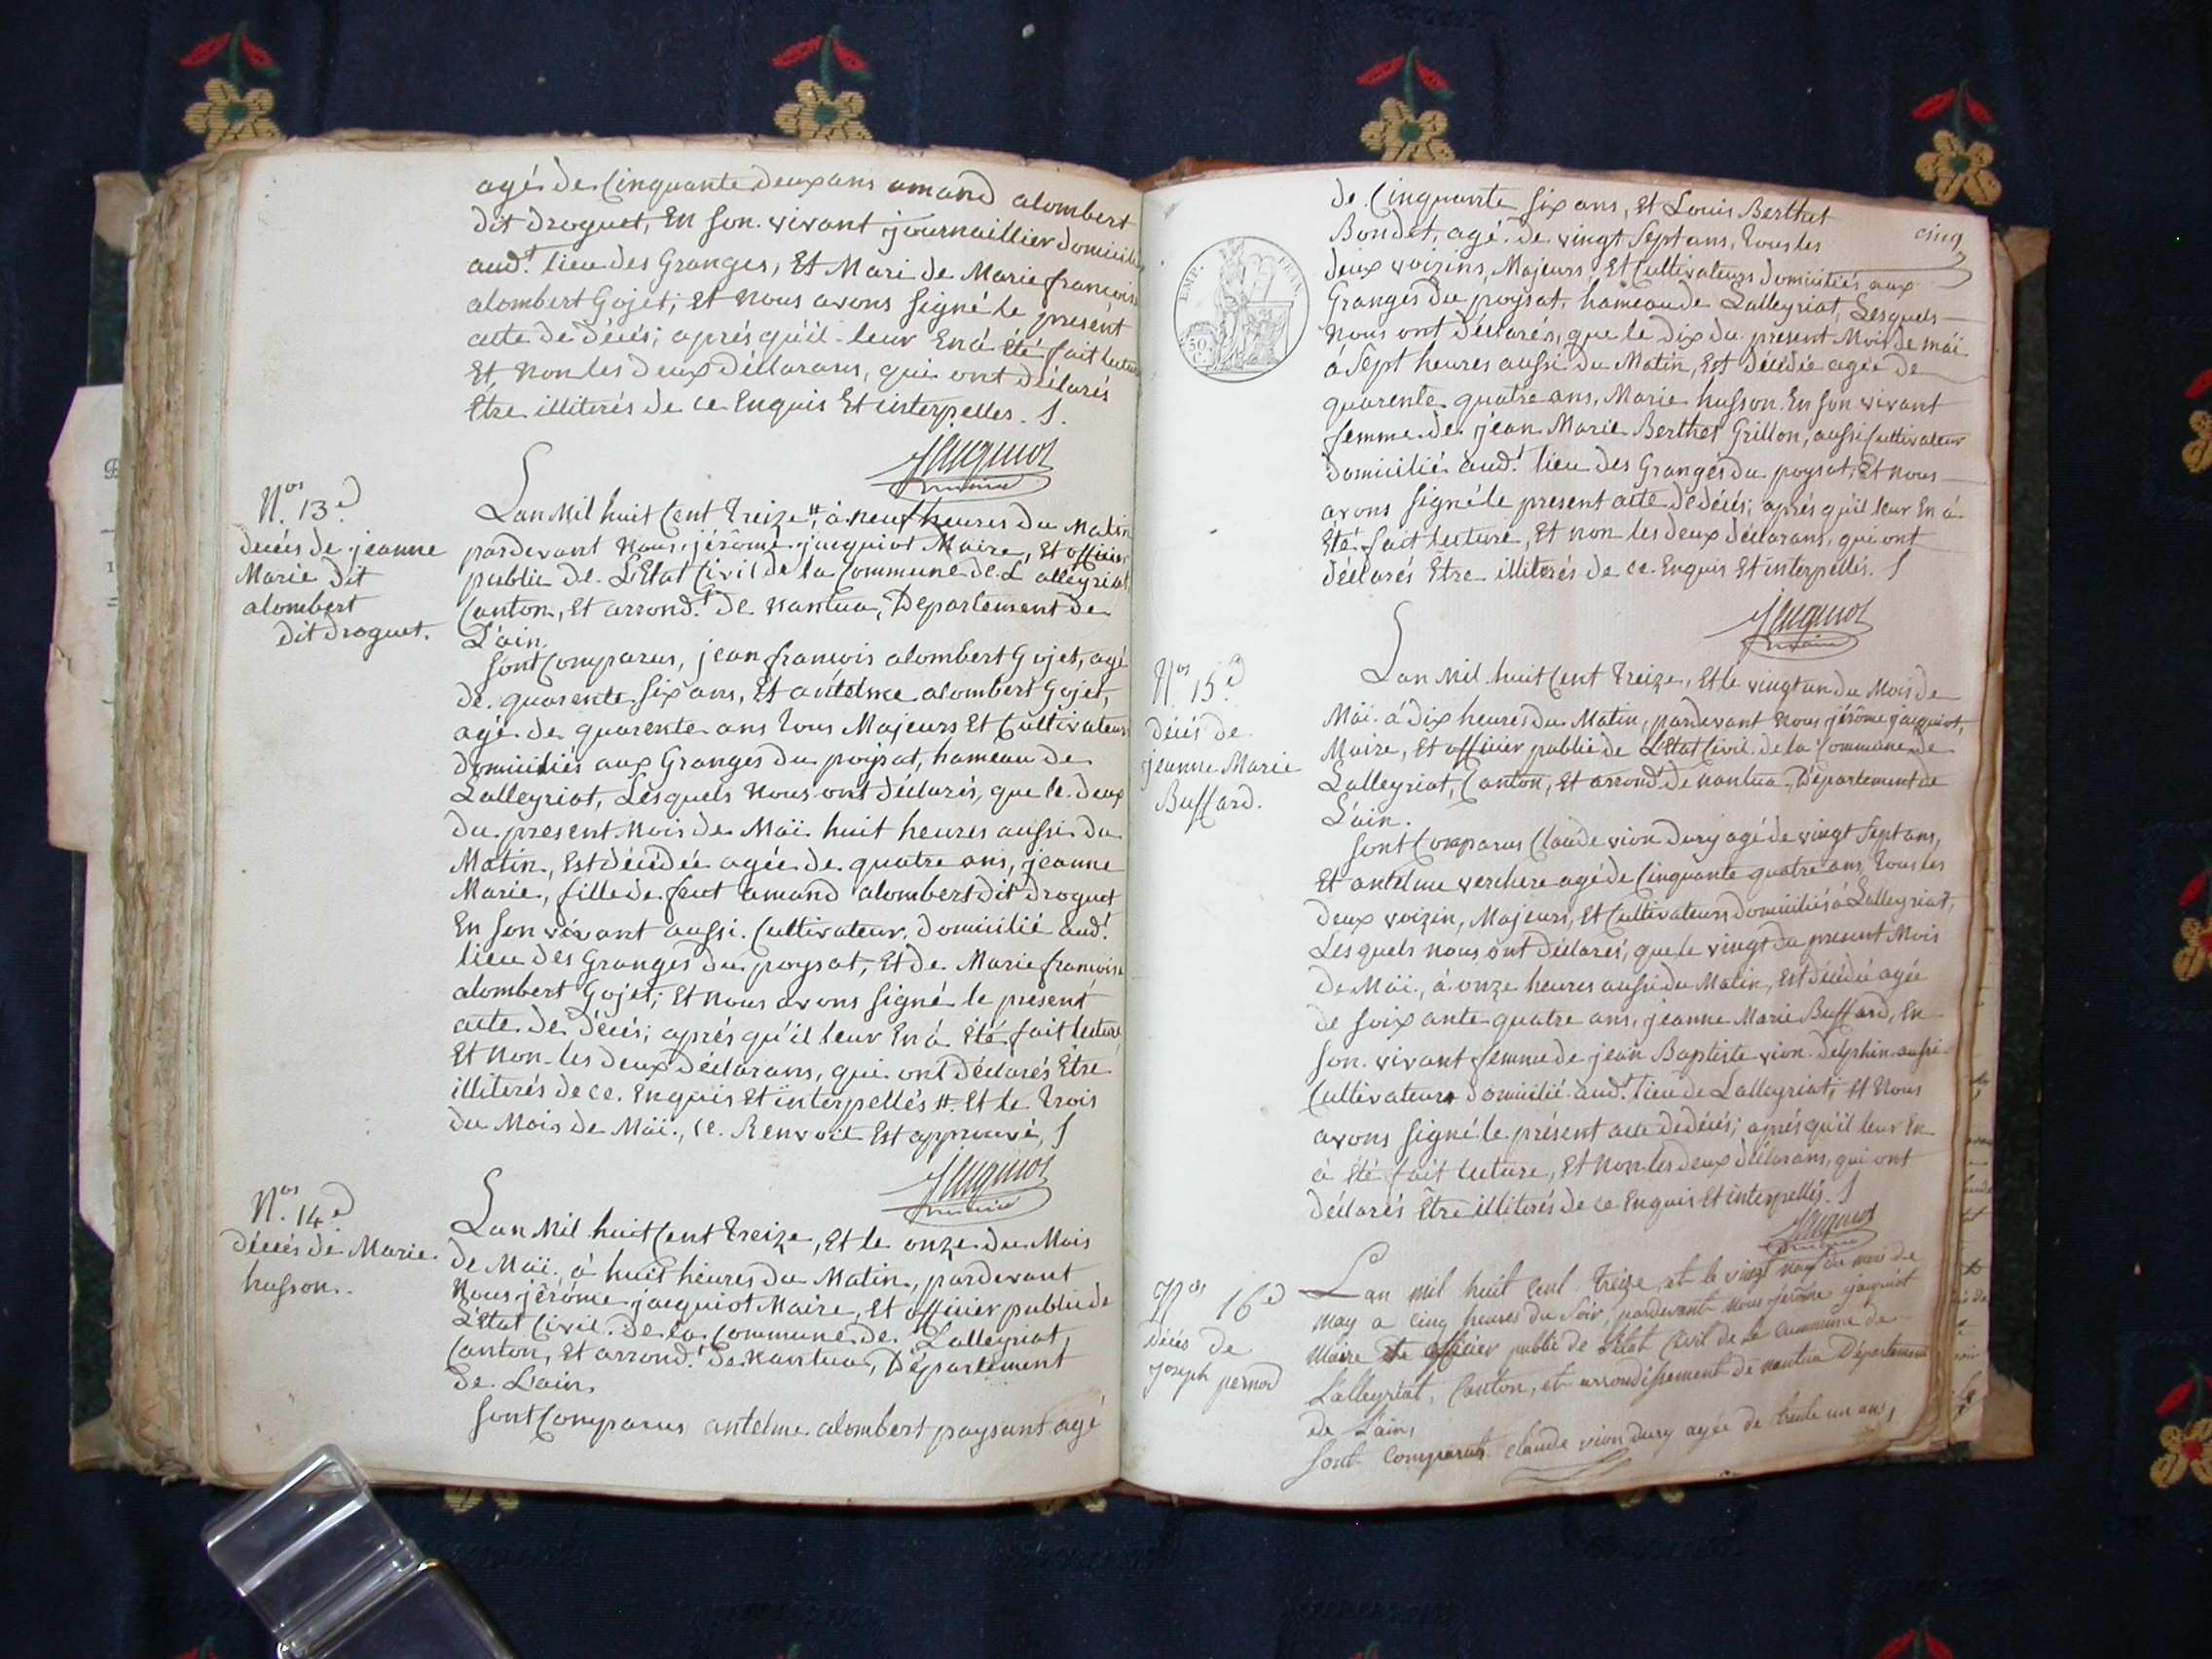 agé de Cinquante deux ans amand alombert
dit droguet, En son vivant journaillier domicilié
aud.t lieu des Granges, Et Mari de Marie françoise
alombert Gojet; et nous avons signé le présent
acte de décés; aprés qu'il leur En à été fait lecture
Et non les deux déclarans, qui ont déclarés
Etre illiterés de ce Enquis Et interpelles. /.
Jacquiot
maire
N.os 13.e
décés de jeanne
Marie dit
alombert
dit droguet.
Lan Mil huit Cent Treize #, à neuf heures du Matin
pardevant Nous jérôme jacquiot Maire, Et officier
public de L'Etat Civil de la Commune de L'alleyriat
Canton, Et arrond.t de nantua, Département de
L'ain.
Sont Comparus, jean françois alombert Gojet, agé
de quarente six ans, Et antelme alombert Gojet,
agé de quarente ans tous Majeurs Et Cultivateurs
domiciliés aux Granges du poysat, hameau de
Lalleyriat, Lesquels Nous ont déclarés, que le deux
du présent Mois de Maï huit heures aussi du
Matin, Est décédée agée de quatre ans, jeanne
Marie, fille de feut amand alombert dit droguet
En son vivant aussi Cultivateur, domicilié aud.t
lieu des Granges du poysat, Et de Marie françoise
alombert Gojet; Et nous avons signé le présent
acte de décés; aprés qu'il leur En à été fait lecture
Et Non les deux déclarans, qui ont déclarés Etre
illiterés de ce Enquis Et interpellés #. Et le trois
du Mois de Maï, ce Renvoit Est approuvé, /
Jacquiot
maire
N.os 14.e
décés de Marie
husson.
Lan Mil huit Cent Treize, Et le onze du Mois
de Maï, à huit heures du Matin, pardevant
Nous jérôme jacquiot Maire, Et officier public de
L'Etat Civil de la Commune de Lalleyriat,
Canton, Et arrond.t de Nantua, Département
de L'ain.
Sont Comparus antelme alombert paysant agé
cinq
EMP. FRAN.
50
de Cinquante six ans, Et Louis Berthet
Bondet, agé de vingt sept ans, tous les
deux voizins, Majeurs, Et Cultivateurs domiciliés aux
Granges du poysat, hameau de Lalleyriat, Lesquels
Nous ont déclarés, que le dix du présent Mois de maï
à Sept heures aussi du Matin, Est décédée agée de
quarente quatre ans, Marie husson En son vivant
femme de jean Marie Berthet Grillon, aussi Cultivateur
domicilié aud.t lieu des Granges du poysat, Et nous
avons signé le present acte de décés; aprés qu'il leur En à
Été fait lecture, Et non les deux déclarans, qui ont
déclarés Etre illiterés de ce Enquis Et interpellés. /
Jacquiot
maire
N.os 15.e
décés de
jeanne Marie
Buffard.
Lan Mil huit Cent Treize, Et le vingt un du Mois de
Maï à dix heures du Matin, pardevant nous jérôme jacquiot,
Maire, Et officier public de L'Etat Civil de la Commune de
Lalleyriat, Canton, Et arrond.t de nantua, Département de
L'ain.
Sont Comparus Claude vion Dury agé de vingt Sept ans,
Et antelme verchere agé de Cinquante quatre ans, tous les
deux voizin, Majeurs, Et Cultivateurs domiciliés à Lalleyriat,
Lesquels nous ont déclarés, que le vingt du present Mois
de Maï, à onze heures aussi du Matin, Est décédée agée
de soixante quatre ans, jeanne Marie Buffard, En
son vivant femme de jean Baptiste vion delphin aussi
Cultivateur domicilié aud.t lieu de Lalleyriat, Et Nous
avons signé le présent acte de décés; aprés qu'il leur En
à Été fait lecture, Et Non les deux déclarans, qui ont
déclarés Être illiterés de ce Enquis Et interpellés. /
Jacquiot
maire
N.os 16.e
décés de
joseph pernod
Lan mil huit Cent Treize, et le vingt du moi de
may a cinq heures du soir, pardevant nous jerôme jaquiot
Maire et officier public de l'état Civil de la Commune de
Lalleyriat, Canton, et arrondissement de nantua Département
de L'ain,
Sont Comparus claude vion dury agée de trente un ans,